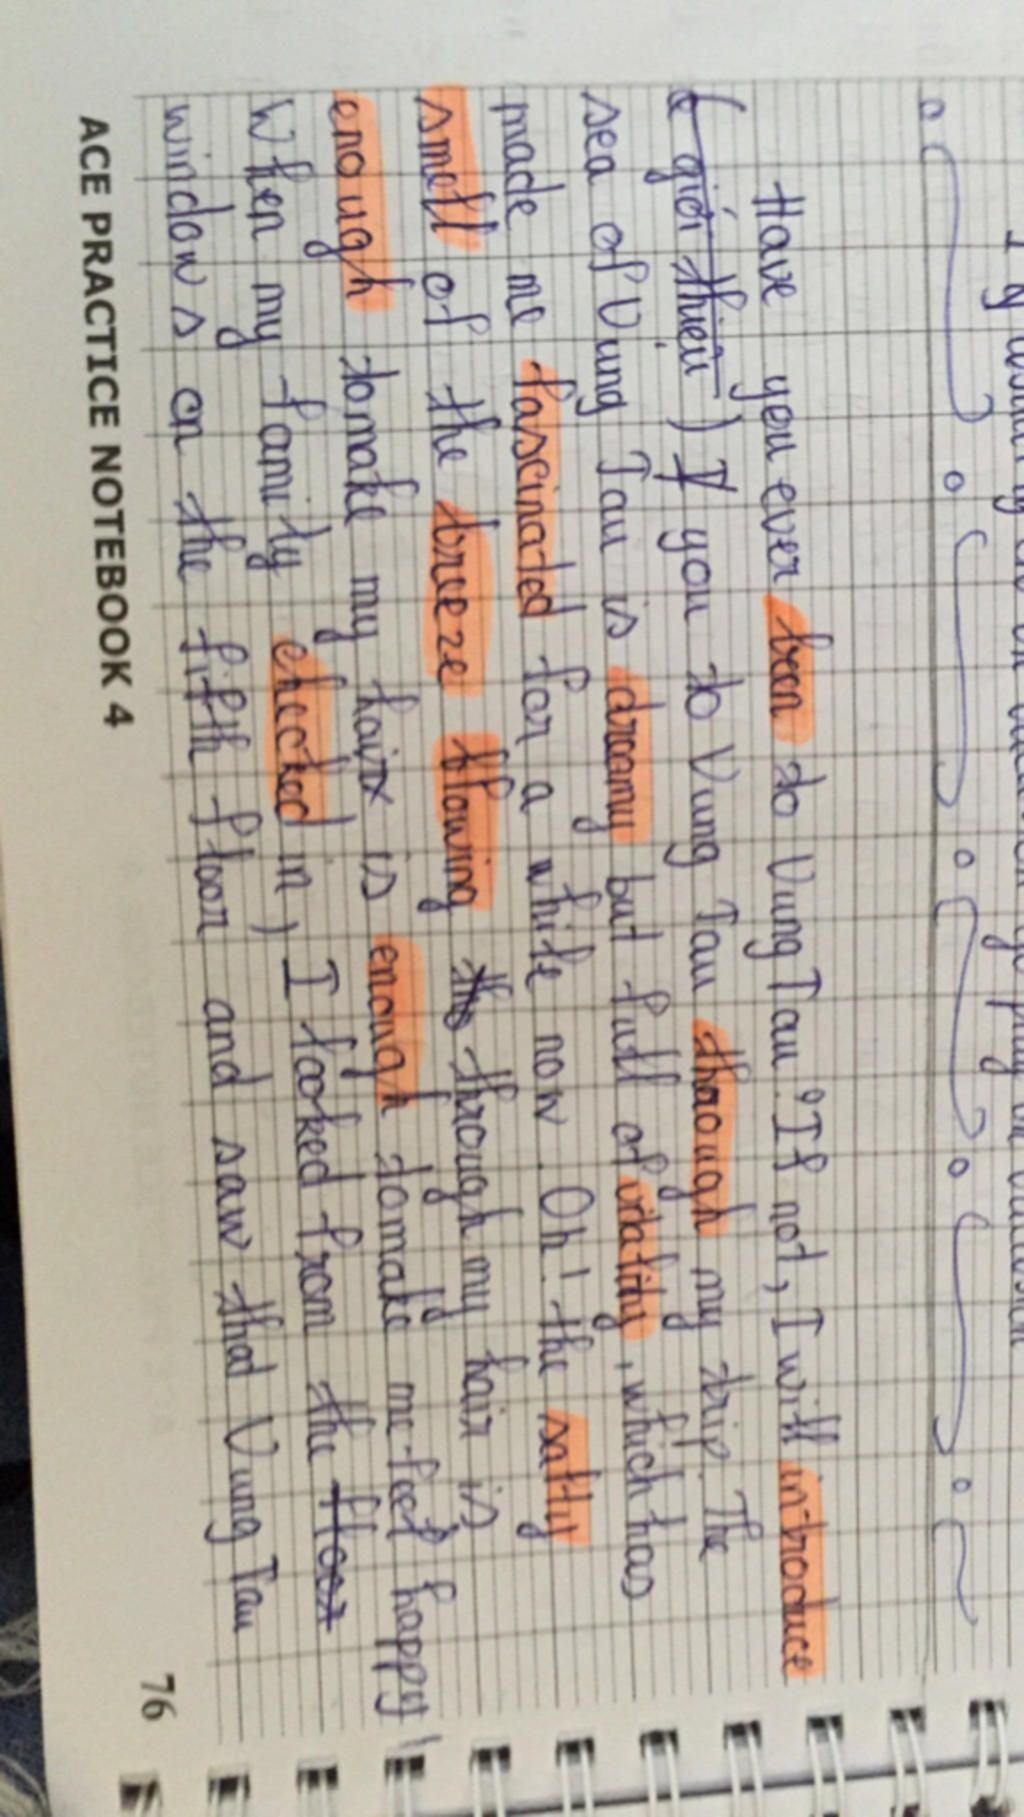 Have you ever been to Vung Tau? If not, I will introduce
(giới thiệu) I you to Vung Tau through my trip. The
sea of Vung Tau is dreamy but full of vitality, which has
made me fascinated for a while now. Oh! the salty
smell of the breeze blowing through my hair is
enough to make my hair is enough to make me feel happy!
When my family checked in, I looked from the
windows on the fifth floor and saw that Vung Tau
ACE PRACTICE NOTEBOOK 4
76